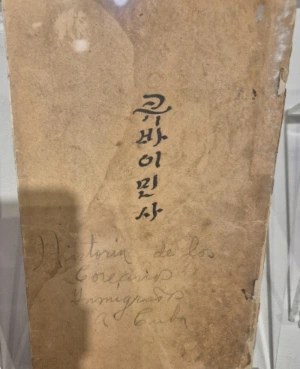 큐바이민사
Historia de los
Coreanos
Inmigrados
A Cuba